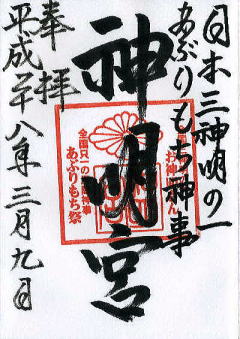 日本三神明の一
あぶりもち神事
神明宮
奉拝
平成二十八年三月九日
お神明さん
全国只一の
あぶりもち祭